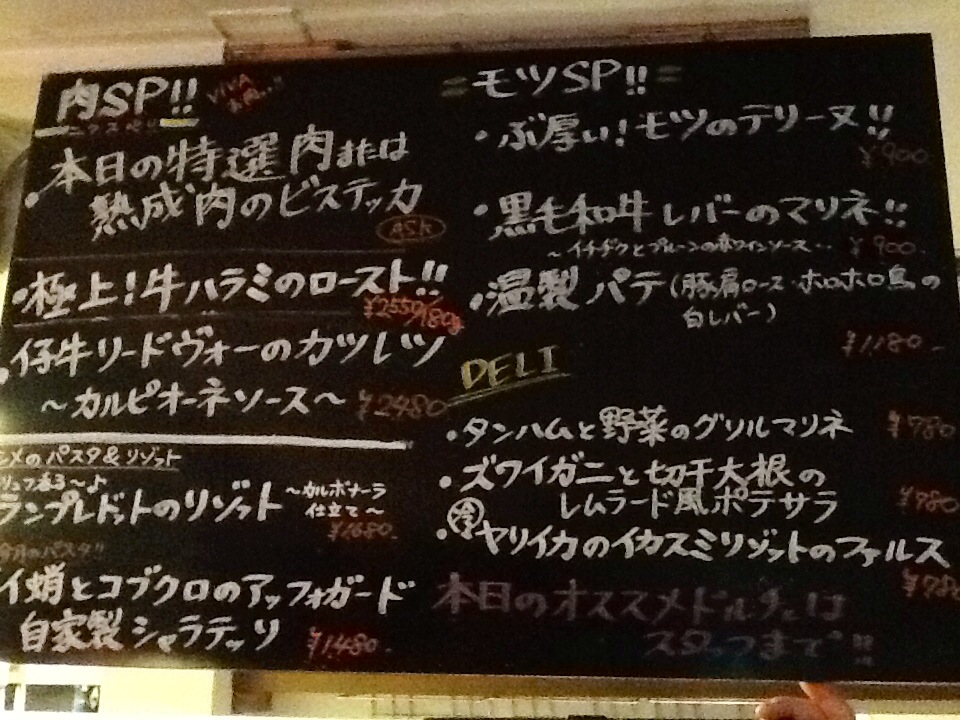 肉SP!!
VIVA
本日の特選肉または
熟成肉のビステッカ
ASK
極上!牛ハラミのロースト!!
¥2550/180g
仔牛リードヴォーのカツレツ
~カルピオーネソース~ ¥2480
メのパスタ&リゾット
ランプレドットのリゾット ~カルボナーラ
仕立て~
¥1680
今月のパスタ!!
イ蛸とコブクロのアッフォガード
自家製シャラテッリ ¥1,480-
=モツSP!!=
・ぶ厚い!モツのテリーヌ!!
¥900
・黒毛和牛レバーのマリネ!!
~イチヂクとプルーンの赤ワインソース~ ¥900-
・温製パテ(豚肩ロース・ホロホロ鳥の
白レバー)
¥1,180-
DELI
・タンハムと野菜のグリルマリネ ¥780
・ズワイガニと切干大根の
レムラード風ポテサラ ¥780
・冷 ヤリイカのイカスミリゾットのファルス
¥780
本日のオススメドルチェは
スタッフまで!!